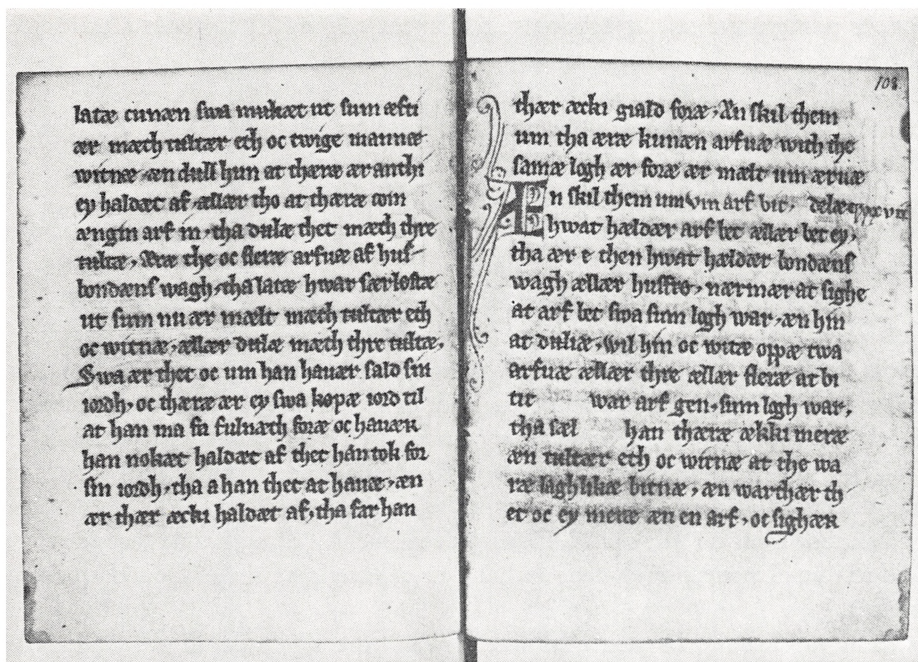 latæ cunæn swa mukæt ut sum æfti
ær mæth tiltær eth oc twige mannæ
witnæ, æn dull hun at thæræ ær anthi
ey haldæt af, ællær tho at thæræ com
ængin arf in, tha dulæ thet mæth thre
tultæ, Æræ the oc fleræ arfuæ af hus
bondæns wagh, tha latæ hwar særløstæ
ut sum nu ær mælt mæth tultær eth
oc witnæ, ællær dulæ mæth thre tultæ,
Swa ær thet oc um han hauær sald sin
iordh, oc thæræ ær ey swa køpæ iord til
at han ma sin fulnæth foræ oc hauær
han nokæt haldæt af thet han tok for
sin iordh, tha a han thet at hauæ, æn
ær thær ækki haldæt af, tha far han
108
thær ækki giald foræ, Æn skil them
um tha æræ kunæn arfuæ with the
samæ logh ær foræ ær mælt um æruæ
Æn skil them um um arf bit, delæ
hwat hældær arf bet ællær bet ey,
tha ær e then hwat hældær bondæns
wagh ællær husfro, nærmær at sighe
at arf bet swa sum logh war, æn hin
at duliæ, wil hin oc witæ oppæ twa
arfuæ ællær thre ællær fleræ at bi
tit war arf gen, sum logh war,
tha sæl han thæræ ækki meræ
æn tultær eth oc witnæ at the wa
ræ laghlikæ bitnæ, æn war thær th
et oc ey meræ æn en arf, oc sighær